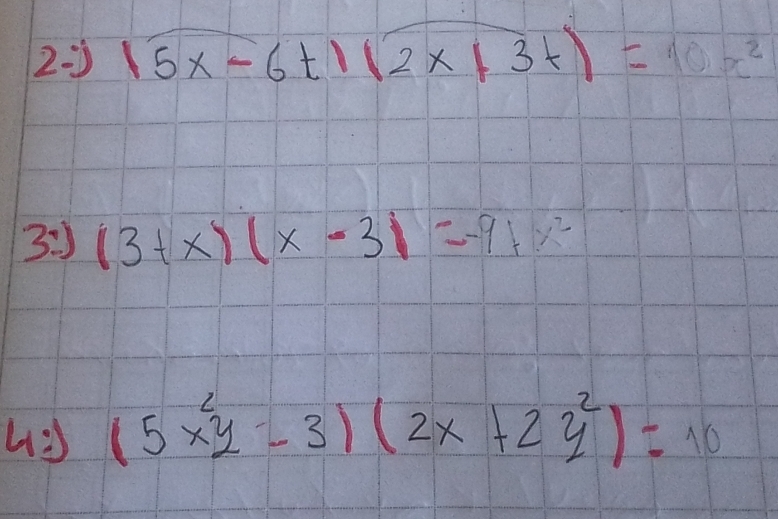 2-) (5x - 6t) (2x + 3t) = 10x²
3-) (3+x) (x - 3) = -9+x²
4-) (5x²y - 3) (2x + 2y²) = 10